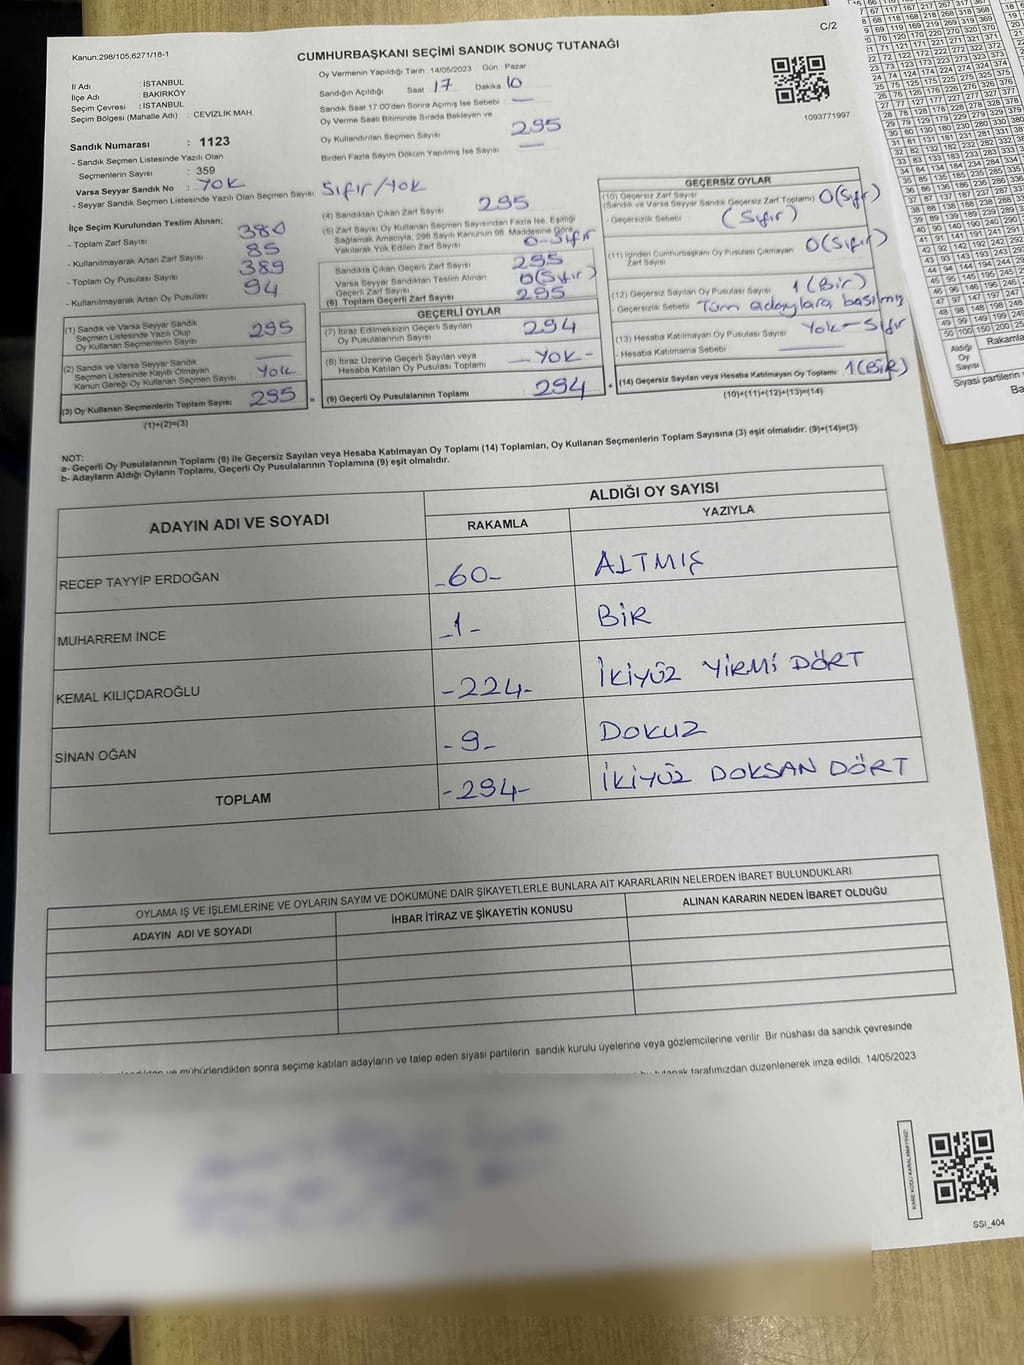 C/2
Kanun;298/105,6271/18-1
CUMHURBAŞKANI SEÇİMİ SANDIK SONUÇ TUTANAĞI
İl Adı : İSTANBUL
İlçe Adı : BAKIRKÖY
Seçim Çevresi : İSTANBUL
Seçim Bölgesi (Mahalle Adı) : CEVİZLİK MAH.
Oy Vermenin Yapıldığı Tarih :14/05/2023 Gün : Pazar
Sandığın Açıldığı Saat 17 Dakika 10
Sandık Saat 17:00'den Sonra Açımış İse Sebebi —
Oy Verme Saati Bitiminde Sırada Bekleyen ve
Oy Kullandırılan Seçmen Sayısı 295
Birden Fazla Sayım Döküm Yapılmış İse Sayısı —
1093771997
Sandık Numarası : 1123
- Sandık Seçmen Listesinde Yazılı Olan
Seçmenlerin Sayısı : 359
Varsa Seyyar Sandık No : YOK
- Seyyar Sandık Seçmen Listesinde Yazılı Olan Seçmen Sayısı Sıfır/Yok
İlçe Seçim Kurulundan Teslim Alınan:
- Toplam Zarf Sayısı 380
- Kullanılmayarak Artan Zarf Sayısı 85
- Toplam Oy Pusulası Sayısı 389
- Kullanılmayarak Artan Oy Pusulası 94
(1) Sandık ve Varsa Seyyar Sandık
Seçmen Listesinde Yazılı Olup
Oy Kullanan Seçmenlerin Sayısı 295
(2) Sandık ve Varsa Seyyar Sandık
Seçmen Listesinde Kayıtlı Olmayan
Kanun Gereği Oy Kullanan Seçmen Sayısı YOK
(3) Oy Kullanan Seçmenlerin Toplam Sayısı 295 =
(1)+(2)=(3)
(4) Sandıktan Çıkan Zarf Sayısı 295
(5) Zarf Sayısı Oy Kullanan Seçmen Sayısından Fazla İse, Eşitliği
Sağlamak Amacıyla, 298 Sayılı Kanunun 98. Maddesine Göre
Yakılarak Yok Edilen Zarf Sayısı 0-Sıfır
Sandıkta Çıkan Geçerli Zarf Sayısı 295
Varsa Seyyar Sandıktan Teslim Alınan
Geçerli Zarf Sayısı 0(Sıfır)
(6) Toplam Geçerli Zarf Sayısı 295
GEÇERLİ OYLAR
(7) İtiraz Edilmeksizin Geçerli Sayılan
Oy Pusulasının Sayısı 294
(8) İtiraz Üzerine Geçerli Sayılan veya
Hesaba Katılan Oy Pusulası Toplamı -YOK-
(9) Geçerli Oy Pusulalarının Toplamı 294 +
GEÇERSİZ OYLAR
(10) Geçersiz Zarf Sayısı
(Sandık ve Varsa Seyyar Sandık Geçersiz Zarf Toplamı) 0(Sıfır)
- Geçersizlik Sebebi (Sıfır)
(11) İçinden Cumhurbaşkanı Oy Pusulası Çıkmayan
Zarf Sayısı 0(Sıfır)
(12) Geçersiz Sayılan Oy Pusulası Sayısı 1(Bir)
- Geçersizlik Sebebi Tüm adaylara basılmış
(13) Hesaba Katılmayan Oy Pusulası Sayısı Yok-Sıfır
- Hesaba Katılmama Sebebi
(14) Geçersiz Sayılan veya Hesaba Katılmayan Oy Toplamı 1(Bir)
(10)+(11)+(12)+(13)=(14)
NOT:
a- Geçerli Oy Pusulalarının Toplamı (9) ile Geçersiz Sayılan veya Hesaba Katılmayan Oy Toplamı (14) Toplamları, Oy Kullanan Seçmenlerin Toplam Sayısına (3) eşit olmalıdır. (9)+(14)=(3)
b- Adayların Aldığı Oyların Toplamı, Geçerli Oy Pusulalarının Toplamına (9) eşit olmalıdır.
ADAYIN ADI VE SOYADI
ALDIĞI OY SAYISI
RAKAMLA YAZIYLA
RECEP TAYYİP ERDOĞAN -60- ALTMIŞ
MUHARREM İNCE -1- BİR
KEMAL KILIÇDAROĞLU -224- İKİYÜZ YİRMİ DÖRT
SİNAN OĞAN -9- DOKUZ
TOPLAM -294- İKİYÜZ DOKSAN DÖRT
OYLAMA İŞ VE İŞLEMLERİNE VE OYLARIN SAYIM VE DÖKÜMÜNE DAİR ŞİKAYETLERLE BUNLARA AİT KARARLARIN NELERDEN İBARET BULUNDUKLARI
ADAYIN ADI VE SOYADI İHBAR İTİRAZ VE ŞİKAYETİN KONUSU ALINAN KARARIN NEDEN İBARET OLDUĞU
ve mühürlendikten sonra seçime katılan adayların ve talep eden siyasi partilerin sandık kurulu üyelerine veya gözlemcilerine verilir Bir nüshası da sandık çevresinde
tutanak tarafımızdan düzenlenerek imza edildi. 14/05/2023
KARE KODU KARALAMAYINIZ!
SSI_404
Aldığı
Oy
Sayısı
Rakamla
Siyasi partilerin